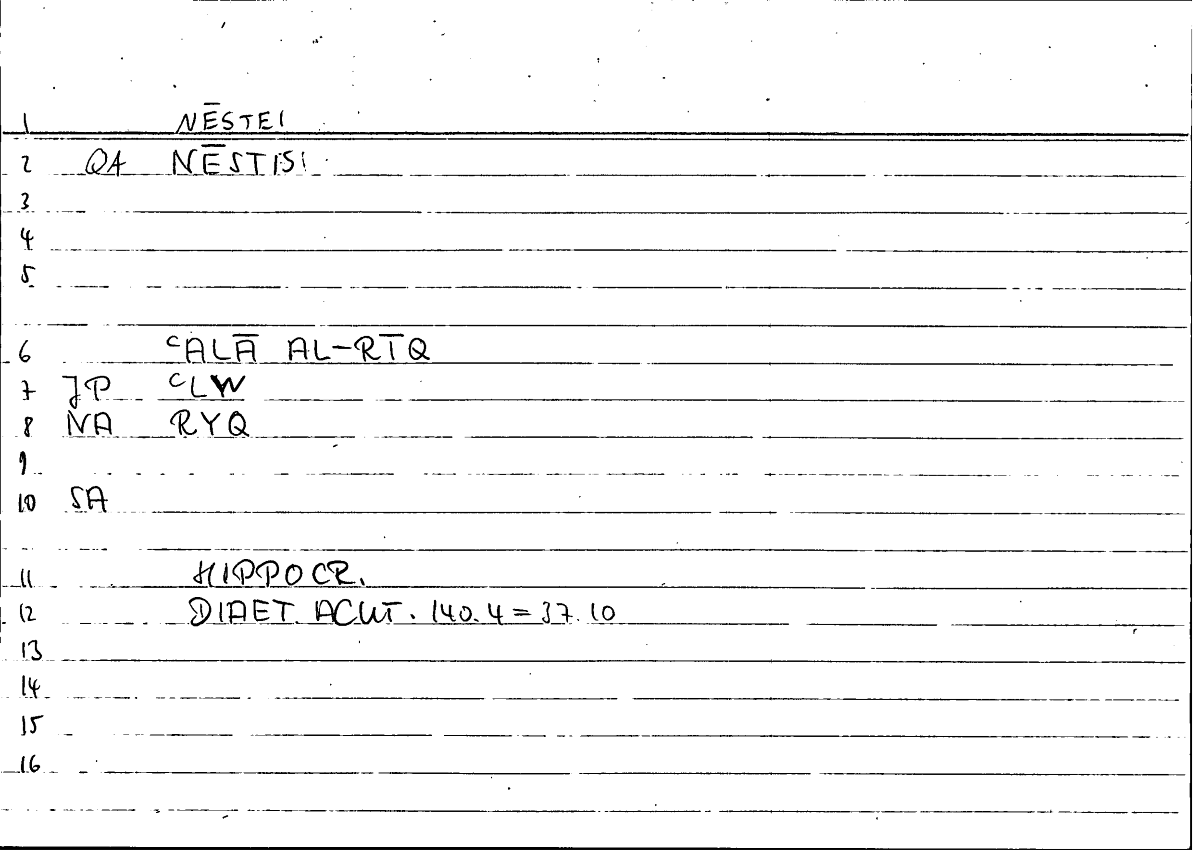 1 NĒSTEI
2 QA NĒSTISI
3
4
5
6 ᶜALĀ AL-RĪQ
7 JP ᶜLW
8 NA RYQ
9
10 SA
11 HIPPOCR.
12 DIAET. ACUT. 140.4 = 37.10
13
14
15
16